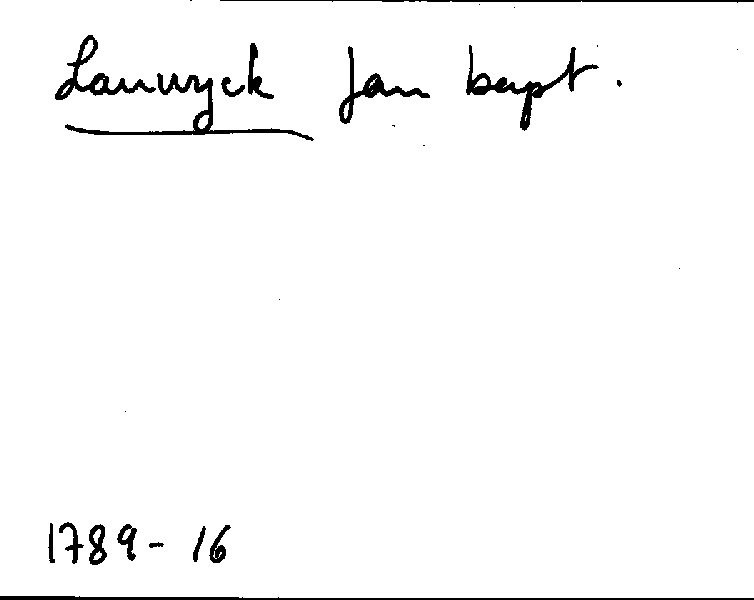 Lauwyck Jan bapt.
1789-16